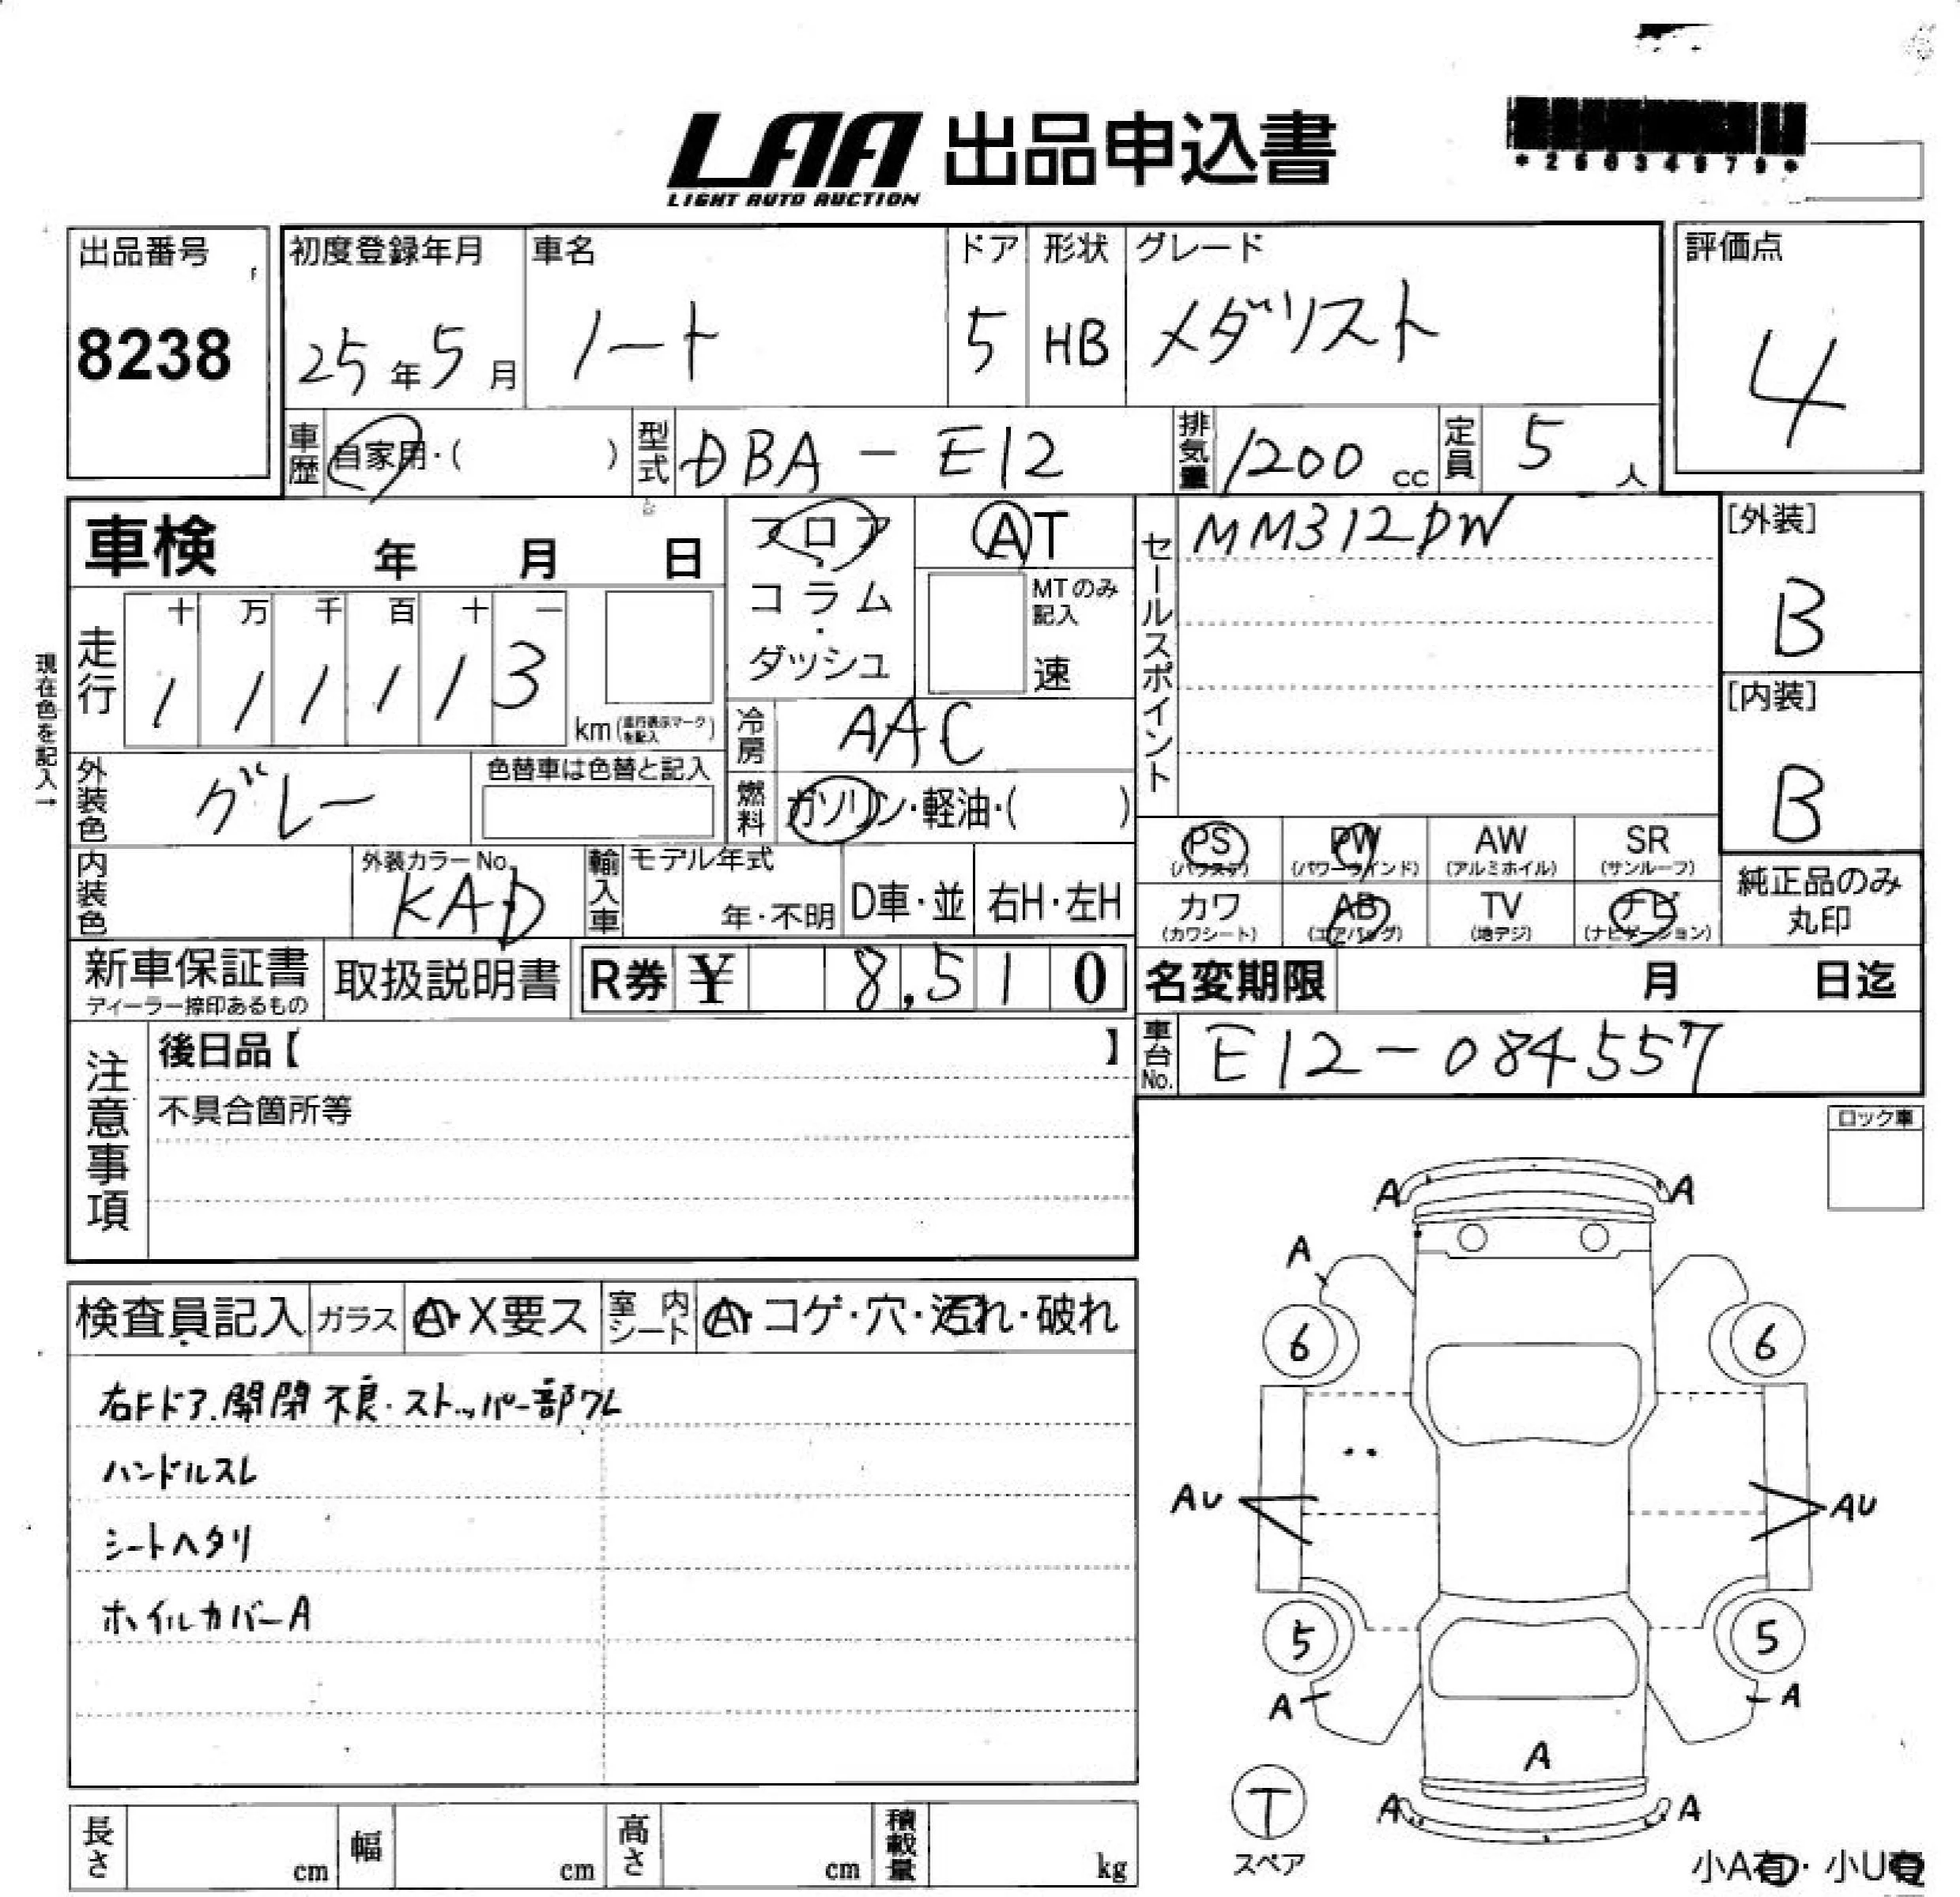 LAA 出品申込書
LIGHT AUTO AUCTION
出品番号
8238
初度登録年月
25年5月
車名
ノート
ドア
5
形状
HB
グレード
メダリスト
評価点
4
車歴 自家用・( )
型式 DBA-E12
排気量 1200 cc
定員 5 人
車検 年 月 日
フロア
・
コラム
・
ダッシュ
AT
MTのみ
記入
速
セールスポイント
MM312DW
[外装]
B
[内装]
B
現在色を記入→
走行
十 万 千 百 十 一
1 1 1 1 1 3
km(走行表示マークを記入)
冷房 AAC
外装色 グレー
色替車は色替と記入
燃料 ガソリン・軽油・( )
内装色
外装カラーNo.
KAD
輸入車
モデル年式
年・不明
D車・並
右H・左H
PS
(パワステ)
PW
(パワーウインド)
AW
(アルミホイル)
SR
(サンルーフ)
カワ
(カワシート)
AB
(エアバッグ)
TV
(地デジ)
ナビ
(ナビゲーション)
純正品のみ
丸印
新車保証書
ディーラー捺印あるもの
取扱説明書
R券 ¥ 8,510
名変期限 月 日迄
車台No. E12-084557
注意事項
後日品【 】
不具合箇所等
ロック車
検査員記入
ガラス A・X要ス
室内シート A・コゲ・穴・汚れ・破れ
右Fドア.開閉不良.ストッパー部ワレ
ハンドルスレ
シートヘタリ
ホイルカバーA
A A
A
6 6
AU AU
5 5
A A
A
A A
T
スペア
小A有・小U有
長さ cm
幅 cm
高さ cm
積載量 kg